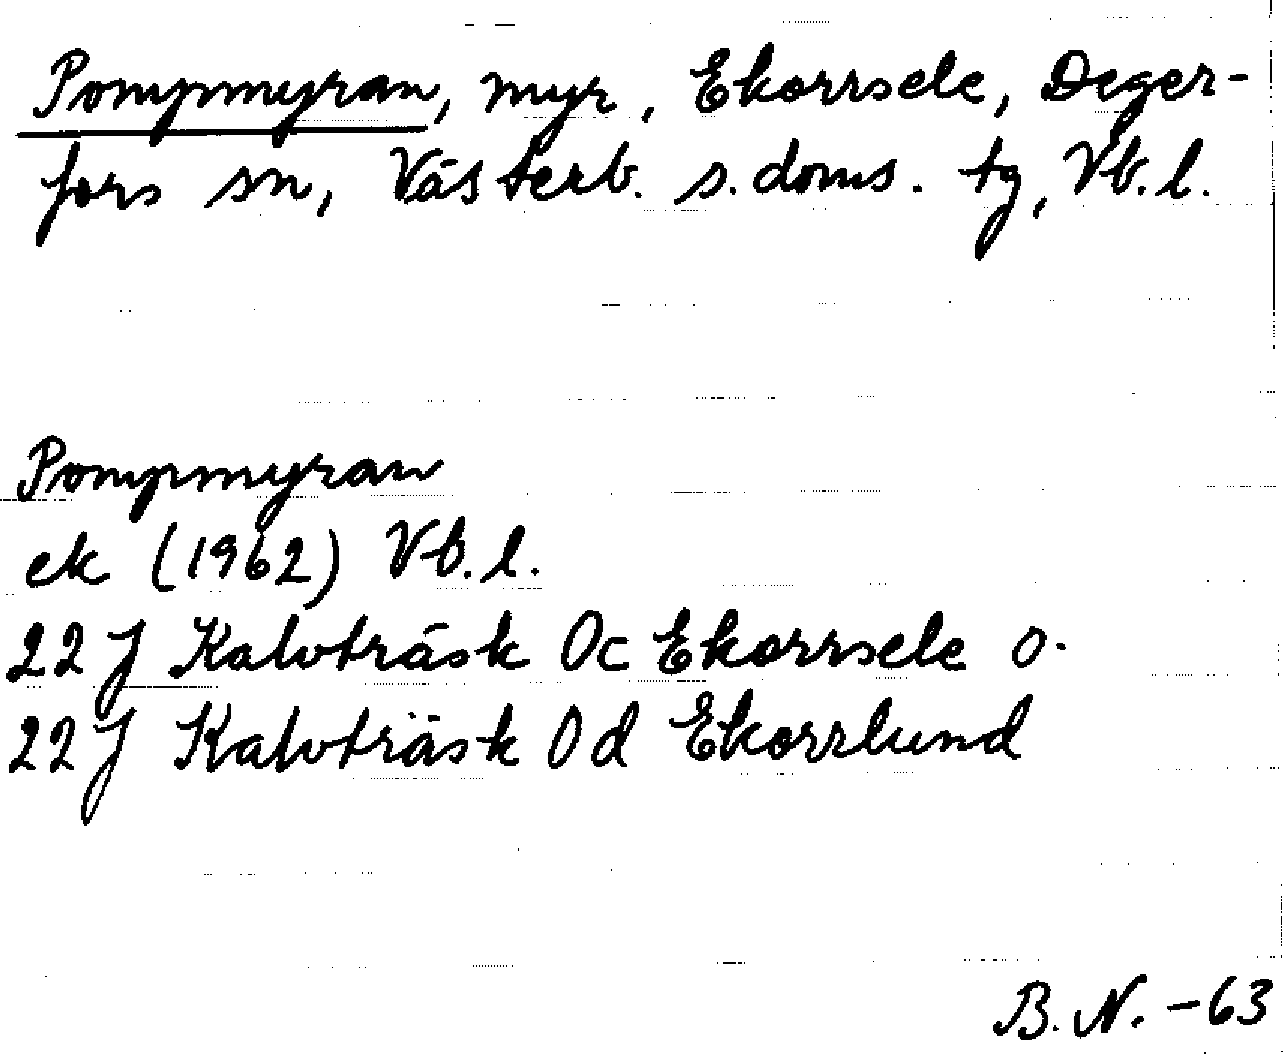 Pompmyran, myr, Ekorrsele, Deger-
fors sn, Västerb. s. doms. tg, Vb. l.
Pompmyran
ek (1962) Vb. l.
22 J Kalvträsk 0c Ekorrsele o.
22 J Kalvträsk 0d Ekorrlund
B. N. -63